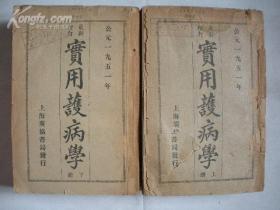 公元一九五一年
最新
實用護病學
下冊
上海廣協書局發行
公元一九五一年
最新
實用護病學
上冊
上海廣協書局發行